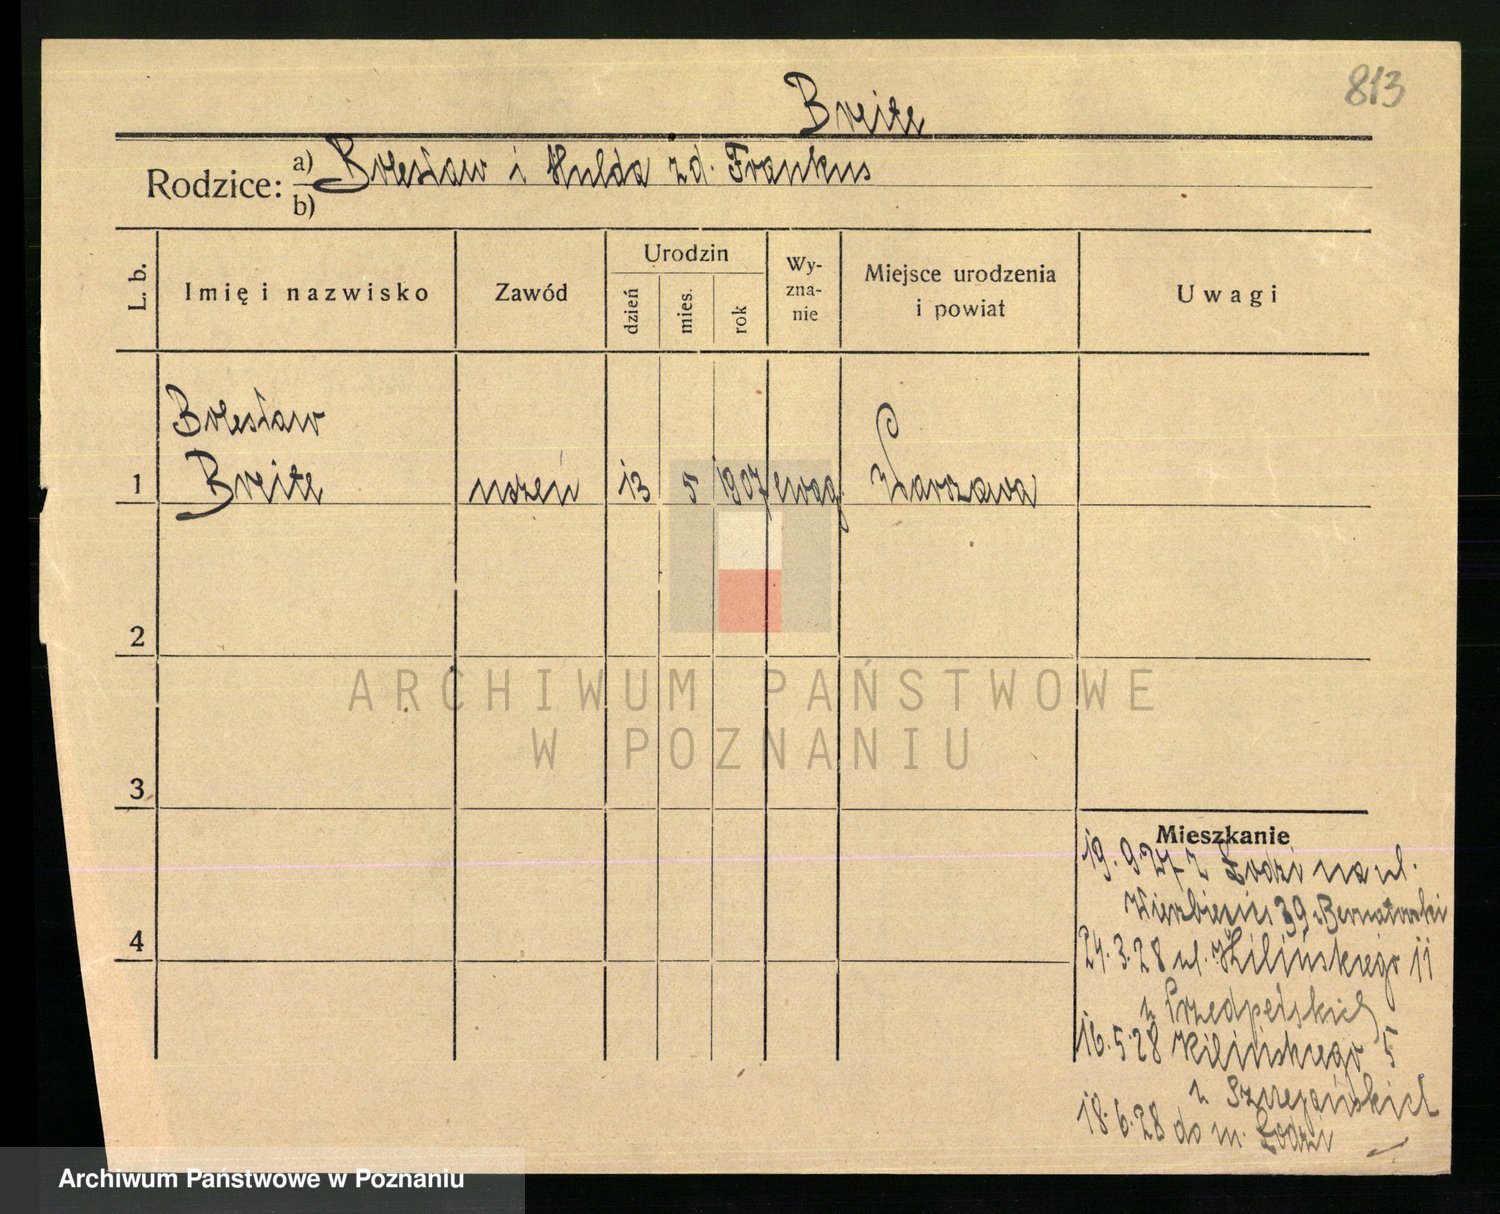 813
Breite
Rodzice: a) Bolesław i Hulda zd. Frankus
b)
L. b.
Imię i nazwisko
Zawód
Urodzin
dzień
mies.
rok
Wy-
zna-
nie
Miejsce urodzenia
i powiat
Uwagi
Bolesław
1 Breite uczeń 13 5 1907 ewag. Warszawa
2
3
4
Mieszkanie
19.9.27 z Łodzi na ul.
Wierzbięcice 39 Bernatowski
24.3.28 ul. Kilińskiego 11
u
16.5.28 Kilińskiego 5
u
18.6.28 do m. Łodzi
ARCHIWUM PAŃSTWOWE
W POZNANIU
Archiwum Państwowe w Poznaniu